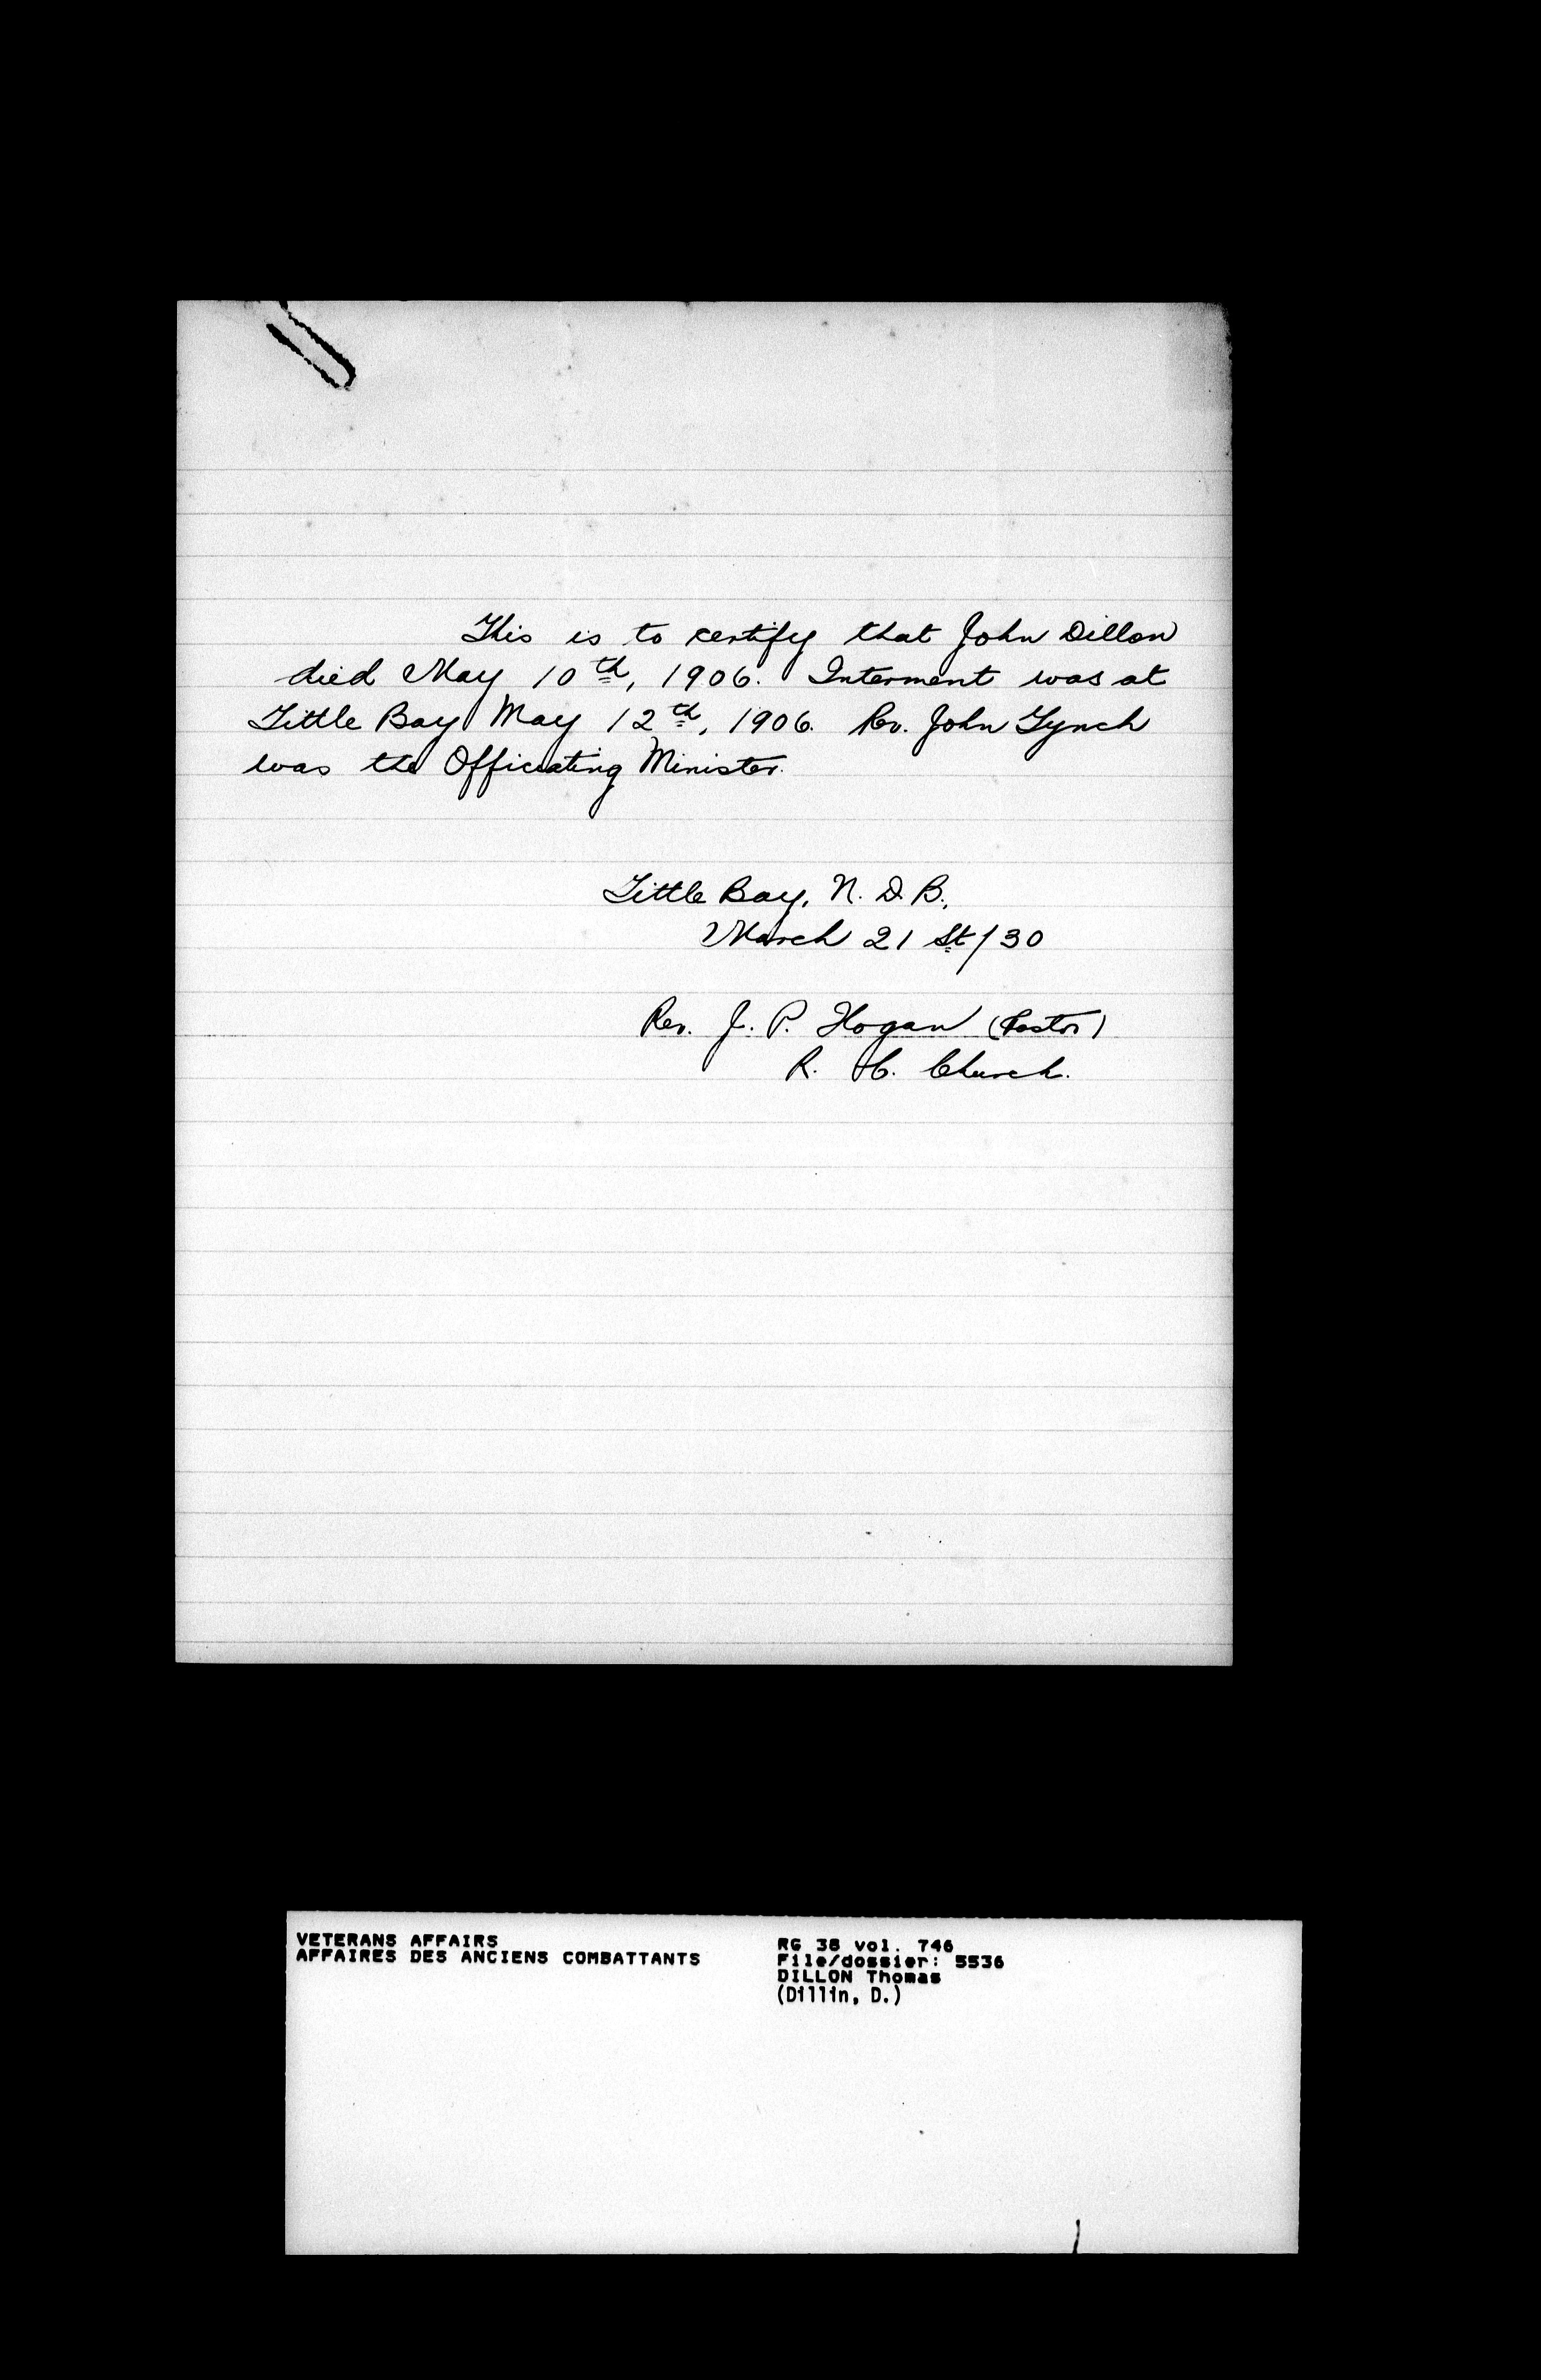 This is to certify that John Dillon
died May 10th, 1906. Interment was at
Little Bay May 12th, 1906. Rev. John Lynch
was the Officiating Minister.
Little Bay, N. D. B.,
March 21 St/30
Rev. J. P. Hogan (Pastor)
R. C. Church.
VETERANS AFFAIRS
AFFAIRES DES ANCIENS COMBATTANTS
RG 38 vol. 746
File/dossier: 5536
DILLON Thomas
(Dillin, D.)